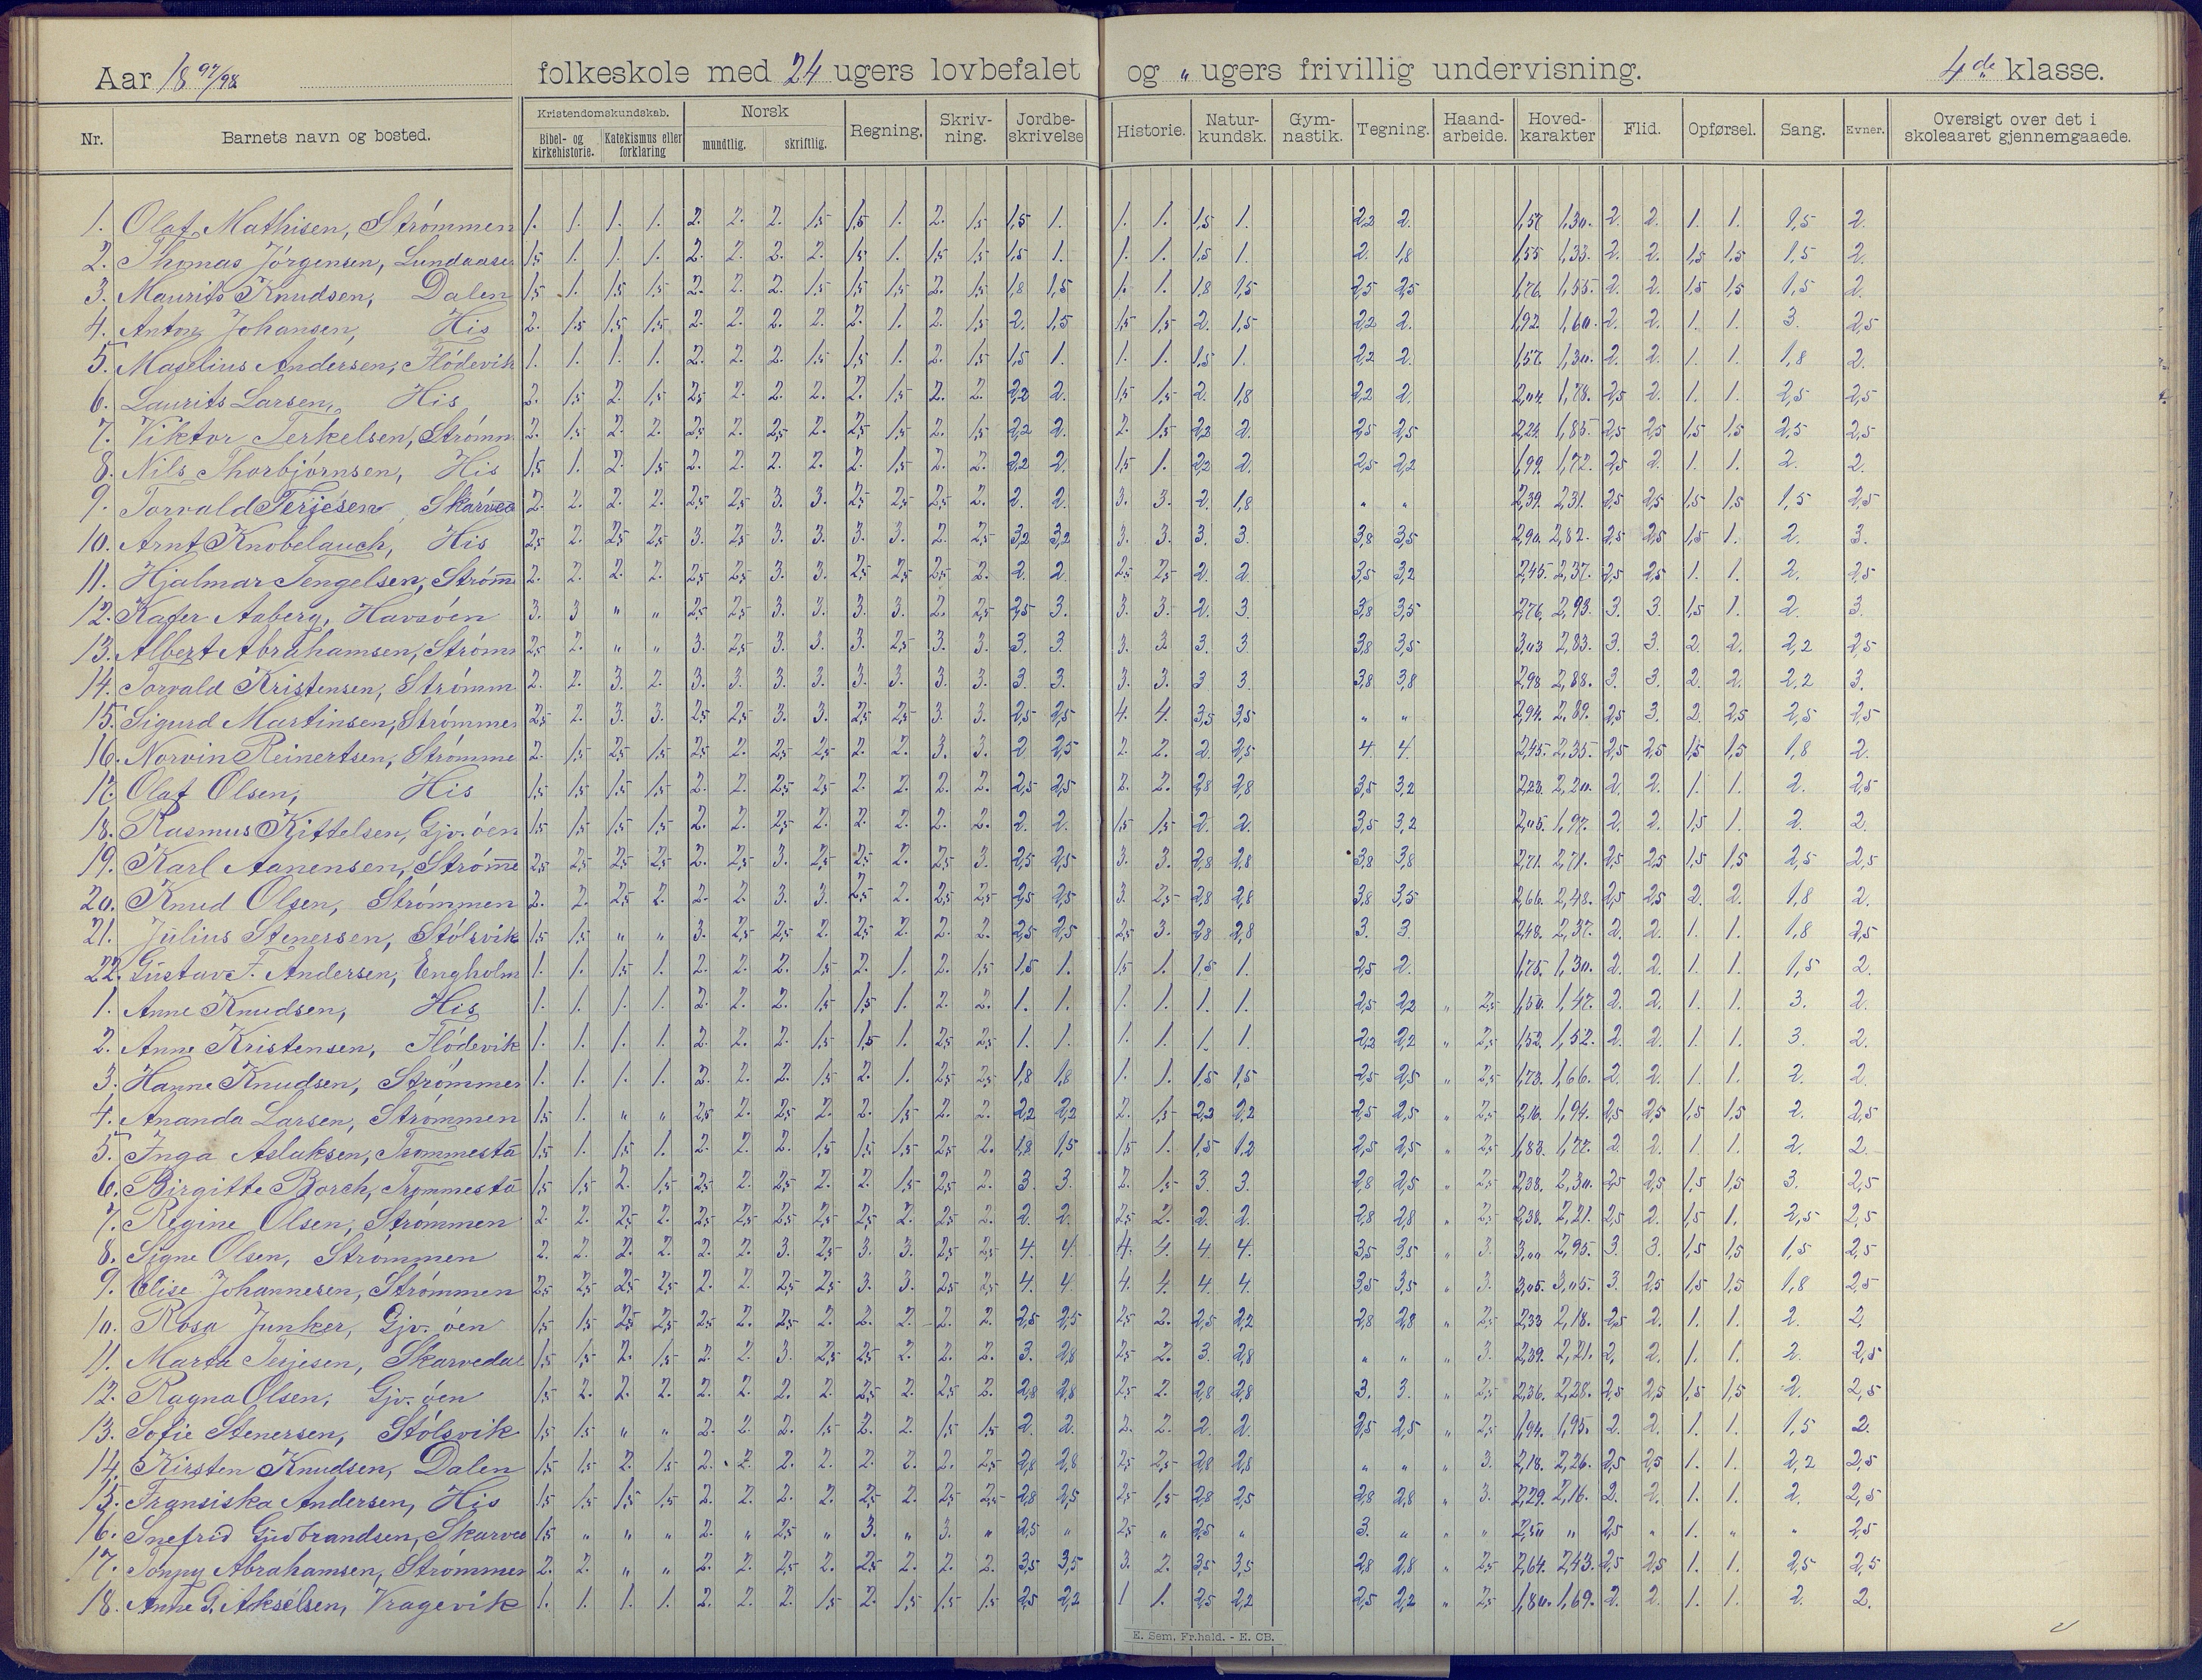 Aar 18 97/98 folkeskole med 24 ugers lovbefalet og „ ugers frivillig undervisning. 4de klasse.
Nr. Barnets navn og bosted. Kristendomskundskab. Bibel- og kirkehistorie. Katekismus eller forklaring Norsk mundtlig. skriftlig. Regning. Skriv-ning. Jordbe-skrivelse Historie. Natur-kundsk. Gym-nastik. Tegning. Haand-arbeide. Hoved-karakter Flid. Opførsel. Sang. Evner. Oversigt over det i skoleaaret gjennemgaaede.
1. Olaf Mathisen, Strömmen 1. 1. 1. 1. 2. 2. 2. 1,5 1,5 1. 2. 1,5 1,5 1. 1. 1. 1,5 1. 2,2 2. 1,57 1,30. 2. 2. 1. 1. 1,5 2.
2. Thomas Jörgensen, Lundaase 1,5 1. 1. 1. 2. 2. 2. 2. 1,5 1. 1,5 1,5 1,5 1. 1. 1. 1,5 1. 2. 1,8 1,55 1,33. 2. 2. 1,5 1,5 1,5 2.
3. Maurits Knudsen, Dalen 1,5 1. 1,5 1,5 2. 2. 2. 1,5 1,5 1,5 2. 1,5 1,8 1,5 1. 1. 1,8 1,5 2,5 2,5 1,76. 1,55. 2. 2. 1,5 1,5 1,5 2.
4. Anton Johansen, His 2. 1,5 1,5 1,5 2. 2. 2. 2. 2. 1. 2. 1,5 2. 1,5 1,5 1,5 2. 1,5 2,2 2. 1,92 1,60. 2. 2. 1. 1. 3. 2,5
5. Maselius Andersen, Flödevik 1. 1. 1. 1. 2. 2. 2. 1,5 1,5 1. 2. 1,5 1,5 1. 1. 1. 1,5 1. 2,2 2. 1,57. 1,30. 2. 2. 1. 1. 1,8 2.
6. Laurits Larsen, His 2. 1,5 2. 1,5 2,5 2. 2. 2. 2. 1,5 2. 2. 2,2 2. 1,5 1,5 2. 1,8 2,2 2. 2,04. 1,78. 2,5 2. 1. 1. 2,5 2,5
7. Viktor Terkelsen, Strömm 2. 1,5 2. 2. 2,5 2. 2,5 2. 2,5 1,5 2. 1,5 2,2 2. 2. 1,5 2,2 2. 2,5 2,5 2,24 1,85. 2,5 2,5 1,5 1,5 2,5 2,5
8. Nils Thorbjörnsen, His 1,5 1. 2. 1,5 2. 2. 2. 2. 2. 1,5 2. 2. 2,2 2. 1,5 1. 2,2 2. 2,5 2,2 1,99. 1,72. 2,5 2. 1. 1. 2. 2.
9. Torvald Terjesen Skarved 2. 2. 2. 2. 2,5 2,5 3. 3. 2,5 2,5 2,5 2. 2. 2. 3. 3. 2. 1,8 „ „ 2,39. 2,31. 2,5 2,5 1,5 1,5 1,5 2,5
10. Arnt Knobelauch, His 2,5 2. 2,5 2,5 3. 2,5 3. 3. 3. 3. 2. 2,5 3,2 3,2 3. 3. 3. 3. 3,8 3,5 2,90. 2,82. 2,5 2,5 1,5 1. 2. 3.
11. Hjalmar Tengelsen, Strömm 2. 2. 2. 2. 2,5 2,5 3. 3. 2,5 2,5 2,5 2. 2. 2. 2,5 2,5 2. 2. 3,5 3,2 2,45. 2,37. 2,5 2,5 1. 1. 2. 2,5
12. Kafer Aaberg, Havsöen 3. 3 „ „ 2,5 2,5 3. 3. 3. 3. 2. 2,5 2,5 3. 3. 3. 2. 3. 3,8 3,5 2,76. 2,93. 3. 3. 1,5 1. 2. 3.
13. Albert Abrahamsen, Ström 2,5 2. „ „ 3. 2,5 3. 3. 3. 2,5 3. 3. 3. 3. 3. 3. 3. 3. 3,8 3,5 3,03 2,83. 3. 3. 2. 2. 2,2 2,5
14. Torvald Kristensen, Strömm 2. 2. 3. 2. 3. 3. 3. 3. 3. 3. 3. 3. 3. 3. 3. 3. 3. 3. 3,8 3,8 2,98 2,88. 3. 3. 2. 2. 2,2 3.
15. Sigurd Martinsen, Strömme 2,5 2. 3. 3. 2,5 2,5 3. 3. 2,5 2,5 3. 3. 2,5 2,5 4. 4. 3,5 3,5 „ „ 2,94. 2,89. 2,5 3. 2. 2,5 2,5 2,5
16. Norvin Reinertsen, Strömme 2. 1,5 2,5 1,5 2,5 2. 2,5 2,5 2. 2. 3. 3. 2. 2,5 2. 2. 2. 2,5 4. 4. 2,45. 2,35. 2,5 2,5 1,5 1,5 1,8 2.
17. Olaf Olsen, His 1,5 1,5 1,5 1,5 2. 2. 2,5 2,5 2. 2. 2. 2. 2,5 2,5 2. 2. 2,8 2,8 3,5 3,2 2,23. 2,20. 2. 2. 1. 1. 2. 2,5
18. Rasmus Kittelsen, Gjv. öen 1,5 1,5 1,5 1,5 2. 2. 2,5 2. 2. 2. 2. 2. 2. 2. 1,5 1,5 2. 2. 3,5 3,2 2,05. 1,97. 2. 2. 1,5 1. 2. 2.
19. Karl Aanensen, Strömme 2,5 2,5 2,5 2,5 2. 2,5 3. 2,5 2,5 2. 2,5 3. 2,5 2,5 3. 3. 2,8 2,8 3,8 3,8 2,71. 2,71. 2,5 2,5 1,5 1,5 2,5 2,5
20. Knud Olsen, Strömmen 2. 2. 2,5 2. 2. 2. 3. 3. 2,5 2. 2,5 2,5 2,5 2,5 3. 2,5 2,8 2,8 3,8 3,5 2,66. 2,48. 2,5 2,5 2. 2. 1,8 2.
21. Julius Stenersen, Stölsvik 1,5 1,5 „ „ 3. 2,5 2,5 2. 2,5 2. 2. 2. 2,5 2,5 2,5 3. 2,8 2,8 3. 3. 2,48. 2,37. 2. 2. 1. 1. 1,8 2,5
22. Gustav F. Andersen, Engholm 1. 1. 1,5 1. 2. 2. 2. 1,5 2. 1. 2. 1,5 1,5 1. 1,5 1. 1,5 1. 2,5 2. 1,75. 1,30. 2. 2. 1. 1. 1,5 2.
1. Anne Knudsen, His 1. 1. 1. 1. 2. 2. 2. 1,5 1,5 1. 2. 2. 1. 1. 1. 1. 1. 1. 2,5 2,2 „ 2,5 1,50. 1,47. 2. 2. 1. 1. 3. 2.
2. Anne Kristensen, Flödevik 1. 1. 1. 1. 2. 2. 2. 1,5 1,5 1. 2,5 2,5 1. 1. 1. 1. 1. 1. 2,2 2,2 „ 2,5 1,52. 1,52. 2. 2. 1. 1. 3. 2.
3. Hanne Knudsen, Strömmen 1. 1. 1. 1. 2. 2. 2. 1,5 2. 1. 2,5 2,5 1,8 1,8 1. 1. 1,5 1,5 2,5 2,5 „ 2,5 1,73. 1,66. 2. 2. 1. 1. 2. 2.
4. Ananda Larsen, Strömmen 1,5 1. „ „ 2,5 2. 2,5 2. 2. 1,5 2. 2. 2,2 2,2 2. 1,5 2,2 2,2 2,5 2,5 „ 2,5 2,16. 1,94. 2,5 2,5 1,5 1,5 2. 2,5
5. Inga Aslaksen, Trommestà 1,5 1. 1,5 1. 2. 2. 2. 1,5 1,5 1,5 2,5 2. 1,8 1,5 1,5 1. 1,5 1,2 2,5 2,5 „ 2,5 1,83. 1,77. 2. 2. 1. 1. 2. 2.
6. Birgitte Borch, Trommestà 1,5 1,5 2. 1,5 2,5 2. 2,5 2. 2. 1,5 2,5 2. 3. 3. 2. 1,5 3. 3. 2,8 2,5 „ 2,5 2,38. 2,30. 2,5 2,5 1,5 1,5 3. 2,5
7. Regine Olsen, Strömmen 2. 2. 2,5 2. 2,5 2,5 2,5 2,5 2,5 2. 2,5 2. 2. 2. 2,5 2. 2. 2. 2,8 2,8 „ 2,5 2,38. 2,21. 2,5 2. 1,5 1. 2,5 2,5
8. Signe Olsen, Strömmen 2. 2. 2. 2. 2. 2. 3. 2,5 3. 3. 2,5 2,5 4. 4. 4. 4. 4. 4. 3,5 3,5 „ 3. 3,00 2,95. 3. 3. 1,5 1,5 1,5 2,5
9. Elise Johannesen, Strömmen 2,5 2,5 2,5 2,5 2. 2. 2,5 2,5 3. 3. 2,5 2,5 4. 4. 4. 4. 4. 4. 3,5 3,5 „ 3. 3,05. 3,05. 3. 2,5 1,5 1,5 1,8 2,5
10. Rosa Junker, Gjv. öen 1,5 1,5 2,5 2,5 2,5 2. 2,5 2. 2. 2. 2. 2. 2,5 2,5 2,5 2. 2,5 2,2 2,8 2,8 „ 2,5 2,33 2,18. 2,5 2. 1. 1. 2. 2.
11. Marta Terjesen, Skarvedal 1,5 1,5 2. 1,5 2. 2. 3. 2,5 2,5 2. 2. 2. 3. 2,8 2,5 2. 3. 2,8 „ „ „ 3. 2,39. 2,21. 2. 2. 1. 1. 2. 2,5
12. Ragna Olsen, Gjv. öen 1,5 2. 2. 2. 2. 2. 2. 2. 2,5 2. 2,5 2. 2,8 2,8 2,5 2. 2,8 2,8 3. 3. „ 2,5 2,36. 2,28. 2,5 2,5 1,5 1,5 2. 2,5
13. Sofie Stenersen, Stölsvik 1,5 1,5 „ „ 2. 2. 2. 1,5 2. 2. 1,5 1,5 2. 2. 2. 2. 2. 2. 2,5 2,5 „ 2,5 1,94. 1,95. 2. 2. 1. 1. 1,5 2.
14. Kirsten Knudsen, Dalen 1,5 1,5 2. 1,5 2. 2. 2. 2. 2. 2. 2. 2,5 2,8 2,8 2,5 2,5 2,8 2,8 „ „ „ 3. 2,18. 2,26. 2,5 2,5 1. 1. 2,2 2,5
15. Fransiska Andersen, His 1,5 1,5 1,5 1,5 2. 2. 2. 2. 2,5 2. 2,5 2,5 2,8 2,5 2,5 1,5 2,8 2,5 2,8 2,8 „ 3. 2,29. 2,16. 2. 2. 1. 1. 2. 2,5
16. Snefrid Gudbrandsen, Skarved 1,5 „ „ „ 2. „ 2,5 „ 3. „ 3. „ 2,5 „ 2,5 „ 2,5 „ 3. „ „ „ 2,50 „ 2,5 „ 1. „ „ 2,5
17. Tonny Abrahamsen, Strömmen 2. 2. „ „ 2. 2. 2,5 2. 2,5 2. 2. 2. 3,5 3,5 3. 2. 3,5 3,5 2,8 2,8 „ 2,5 2,64. 2,43. 2,5 2,5 1. 1. 2,5 2,5
18. Anne G. Akselsen, Vragevik 1. 1. 1. 1. 2. 2. 2. 1,5 2. 1,5 1,5 1,5 2,5 2,2 1 1. 2,5 2,2 2,5 2,2 „ 2,5 1,80. 1,69. 2. 2. 1. 1. 2. 2.
E. Sem. Fr.hald. - E. CB.